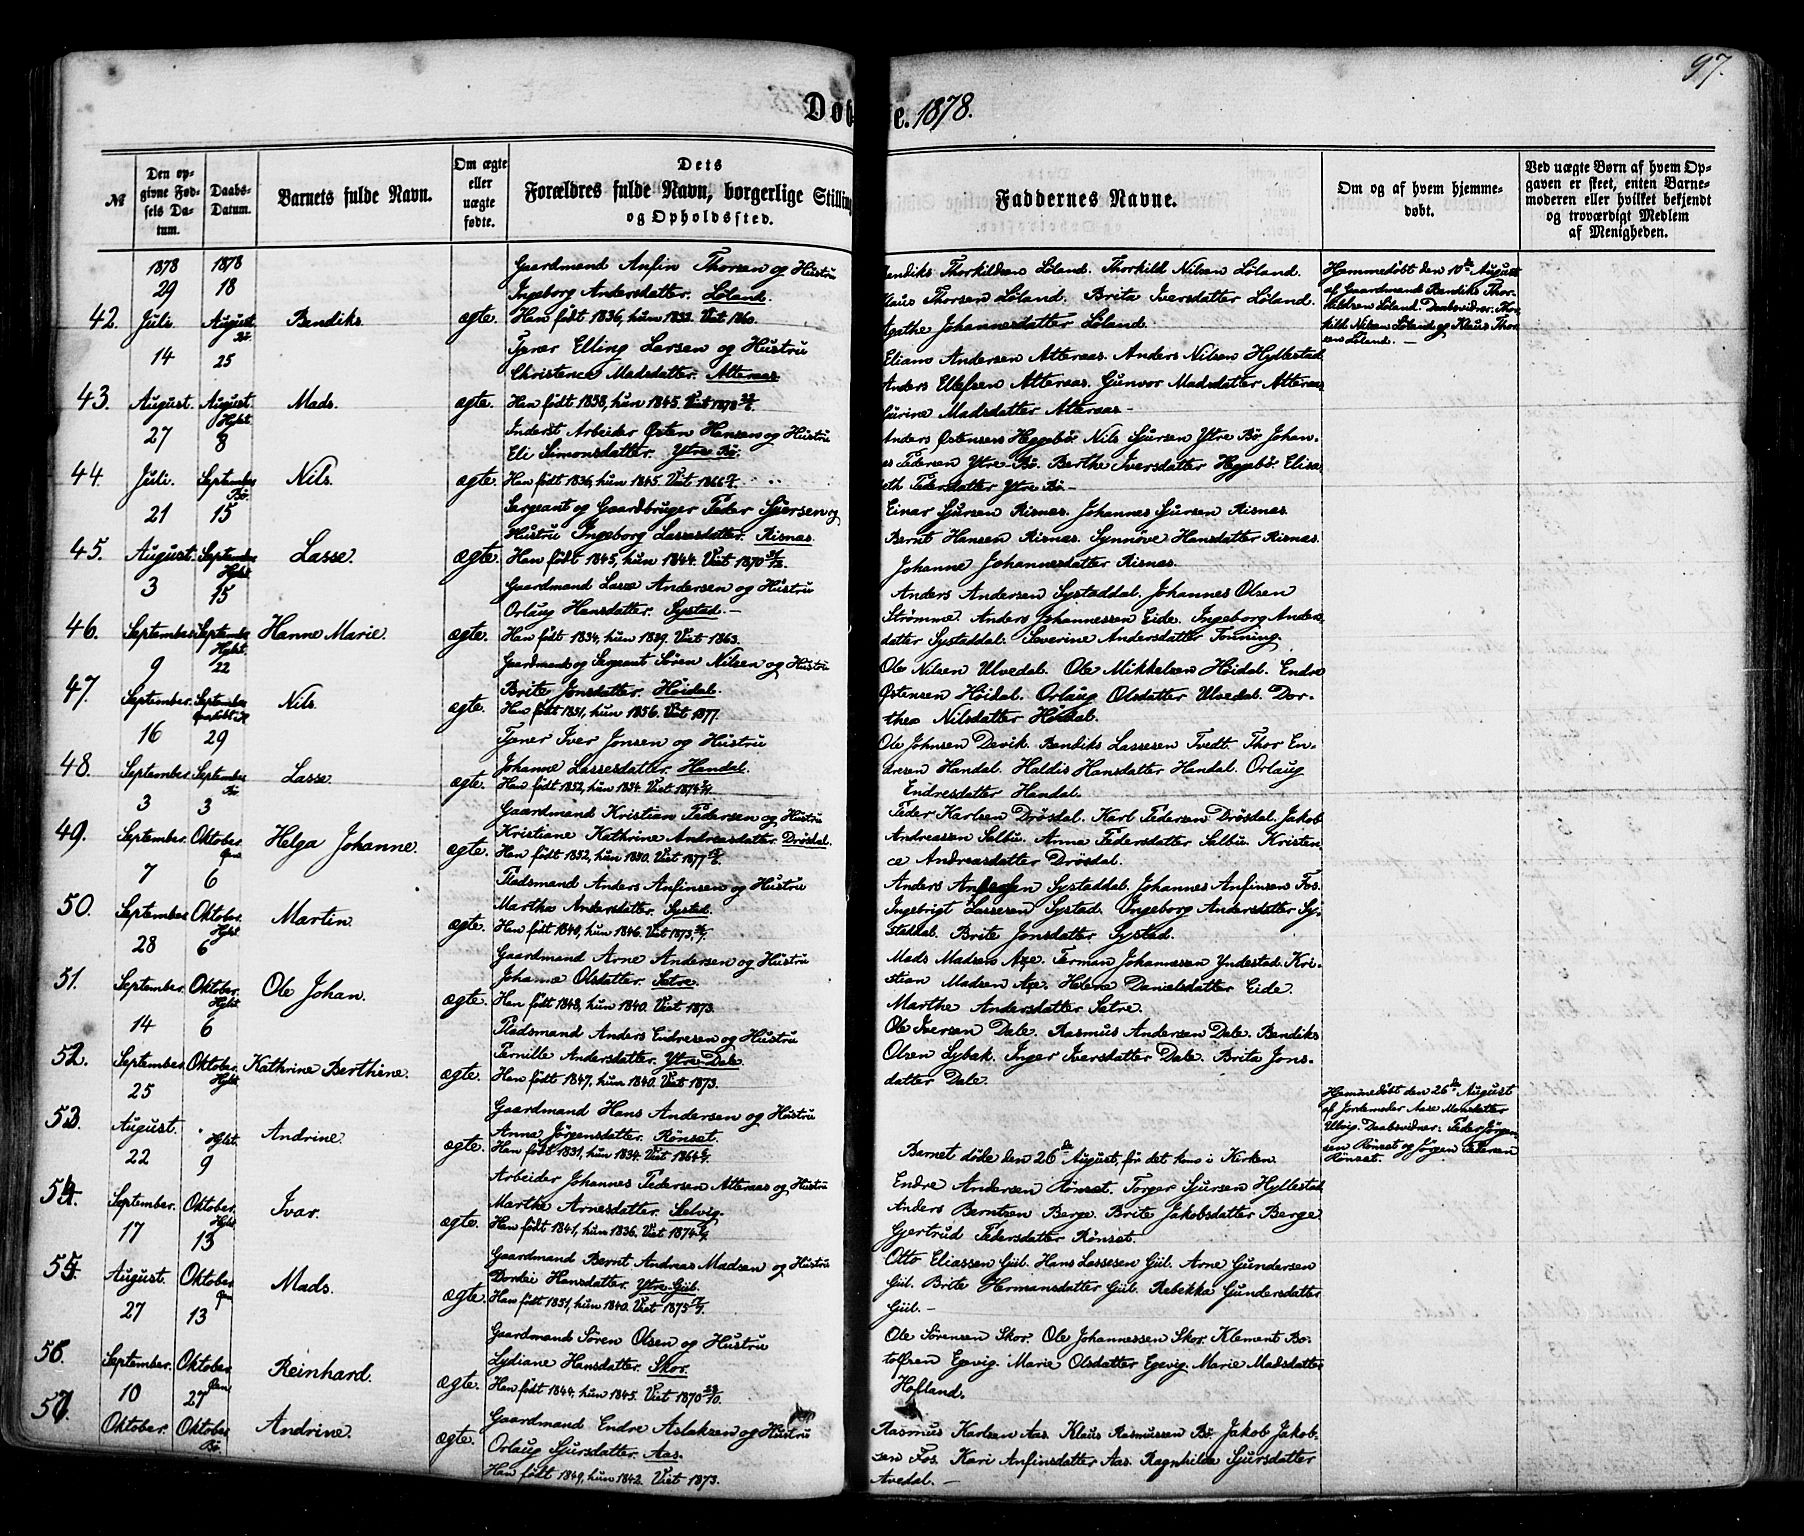 97.
Døb te. 1878.
№
Den opgivne Fødsels Datum.
Daabs-Datum.
Barnets fulde Navn.
Om ægte eller uægte fødte.
Dets Forældres fulde Navn, borgerlige Stilling og Opholdssted.
Faddernes Navne.
Om og af hvem hjemmedøbt.
Ved uægte Børn af hvem Opgaven er skeet, enten Barnemoderen eller hvilket bekjendt og troværdigt Medlem af Menigheden.
1878 1878
42. 29 Juli. 18 August Bø. Bendiks. ægte.
Gaardmand Anfin Thorsen og Hustru
Ingeborg Andersdatter. Løland.
Han født 1836, hun 1833. Viet 1860.
Bendiks Thorkildsen Løland. Thorkild Nilsen Løland.
Klaus Thorsen Løland. Brita Iversdatter Løland.
Agathe Johannesdatter Løland.
Hjemmedøbt den 10de August
af Gaardmand Bendiks Thor-
kildsen Løland. Daabsvidner: Thor-
kild Nilsen Løland og Klaus Thor-
sen Løland. —
43. 14 August. 25 August Hylst. Mads. ægte.
Tjener Elling Larsen og Hustru
Christence Madsdatter. Atteraas.
Han født 1858, hun 1845. Viet 1878
Eliam Andersen Atteraas. Anders Nilsen Hyllestad.
Anders Ellefsen Atteraas. Gunvor Madsdatter Atteraas.
Gurine Madsdatter Atteraas —
44. 27 Juli. 8 September Bø. Nils. ægte.
Inderst Arbeider Østen Hansen og Hustru
Eli Simonsdatter. Ytre Bø.
Han født 1836, hun 1845. Viet 1866
Anders Østensens Heggebø. Nils Sjursen Ytre Bø. Johan-
es Pedersen Ytre Bø. Berthe Iversdatter Heggebø. Elisa
beth Pedersdatter Ytre Bø. —
45. 21 August. 15 September Hylst. Lasse. ægte.
Sergeant og Gaardbruger Peder Sjursen og
Hustru Ingeborg Lassesdatter. Risnæs.
Han født 1845, hun 1844. Viet 1870
Einar Sjursen Risnæs. Johannes Sjursen Risnæs.
Bernt Hansen Risnæs. Synnøve Hansdatter Risnæs.
Johanne Johannesdatter Risnæs.
46. 3 September 15 September Hylst. Hanne Marie. ægte.
Gaardmand Lasse Andersen og Hustru
Orlaug Hansdatter. Systad. —
Han født 1834, hun 1839. Viet 1863.
Anders Andersen Systaddal. Johannes Olsen
Strømme. Anders Johannessen Eide. Ingeborg Anders-
datter Systaddal. Severine Andersdatter Tønning.
47. 9 September. 22 September Nils. ægte.
Gaardmand og Sergeant Søren Nilsen og Hustru
Brite Jonsdatter. Høidal.
Han født 1851, hun 1856. Viet 1877.
Ole Nilsen Ulvedal. Ole Mikkelsen Høidal. Endre
Østensen Høidal. Orlaug Olsdatter Ulvedal. Dor-
thea Nilsdatter Høidal.
48. 16 September. 29 September Bø. Lasse. ægte.
Tjener Iver Jonsen og Hustru
Johanne Lassesdatter. Handal.
Han født 1852, hun 1854. Viet 1874
Ole Johnsen Devik. Bendiks Lassesen Tvedt. Thor En-
dresen Handal. Haldis Hansdatter Handal. Orlaug
Endresdatter Handal.
49. 3 September. 3 Oktober. Helga Johanne. ægte.
Gaardmand Kristian Pedersen og Hustru
Kristiane Kathrine Andreasdatter. Drøsdal.
Han født 1852, hun 1850. Viet 1877
Peder Karlsen Drøsdal. Karl Pedersen Drøsdal. Jakob
Andreassen Salbu. Anna Pedersdatter Salbu. Kristen-
ce Andreasdatter Drøsdal.
50. 7 September. 6 Oktober. Hylst. Martin. ægte.
Pladsmand Anders Anfinsen og Hustru
Martha Andersdatter. Systad.
Han født 1840, hun 1846. Viet 1873
Anders Systaddal. Johannes Anfinsen Fos.
Ingebrigt Lassesen Systad. Ingeborg Andersdatter Sy-
staddal. Brite Jonsdatter Systad.
51. 28 September. 6 Oktober. Hylst. Ole Johan. ægte.
Gaardmand Arne Andersen og Hustru
Johanna Olsdatter. Sætre.
Han født 1848, hun 1840. Viet 1873.
Mads Madsen Axe. Herman Johannessen Yndestad. Kri-
stian Madsen Axe. Helene Danielsdatter Eide.
Marthe Andersdatter Sætre.
52. 14 September. 6 Oktober. Hylst. Kathrine Berthine. ægte.
Pladsmand Anders Endresen og Hustru
Pernille Andersdatter. Ytre Dale.
Han født 1847, hun 1840. Viet 1873.
Ole Iversen Dale. Rasmus Andersen Dale. Bendiks
Olsen Lybak. Inger Iversdatter Dale. Brita Jons-
datter Dale.
53. 25 August. Hylst. Andrine. ægte.
Gaardmand Hans Andersen og Hustru
Anne Jørgensdatter. Rønset.
Han født 1831, hun 1834. Viet 1864
Barnet døde den 26de August, før det kom i Kirken.
Hjemmedøbt den 26de August
af Jordemoder Aase Monsdatter
Ulvig. Daabsvidner: Peder Jørgen-
sen Rønset og Jørgen Pedersen
Rønset.
54. 22 September. 9 Oktober. Hylst. Ivar. ægte.
Arbeider Johannes Pedersen Atteraas og Hustru
Marthe Arnesdatter. Sælvig.
Han født 1841, hun 1836. Viet 1874
Endre Andersen Rønset. Torger Sjursen Hyllestad.
Anders Berntsen Berge. Brite Jakobsdatter Berge.
Gjertrud Pedersdatter Rønset.
55. 17 August. 13 Oktober Mads. ægte.
Gaardmand Bernt Andreas Madsen og Hustru
Dordei Hansdatter. Ytre Gül.
Han født 1851, hun 1840. Viet 1875
Otto Eliassen Gül. Hans Lassesen Gül. Arne Gundersen
Gül. Brite Hermansdatter Gül. Rebekka Gundersdatter
Gül. —
56. 27 September. 13 Oktober. Reinhard. ægte.
Gaardmand Søren Olsen og Hustru
Lydiane Hansdatter. Skor.
Han født 1844, hun 1845. Viet 1870 23/10.
Ole Sørensen Skor. Ole Johannessen Skor. Klement Bo-
tolfsen Egevig. Marie Olsdatter Egevig. Marie Madsdatter
Hofland.
57. 10 Oktober. 27 Oktober Bø. Andrine. ægte.
Gaardmand Endre Aslaksen og Hustru
Orlaug Sjursdatter. Aas.
Han født 1849, hun 1842. Viet 1873.
Rasmus Karlsen Aas. Klaus Rasmussen Bø. Jakob Jakob-
sen Fos. Kari Anfinsdatter Aas. Ragnhilda Sjursdatter
Avedal. —